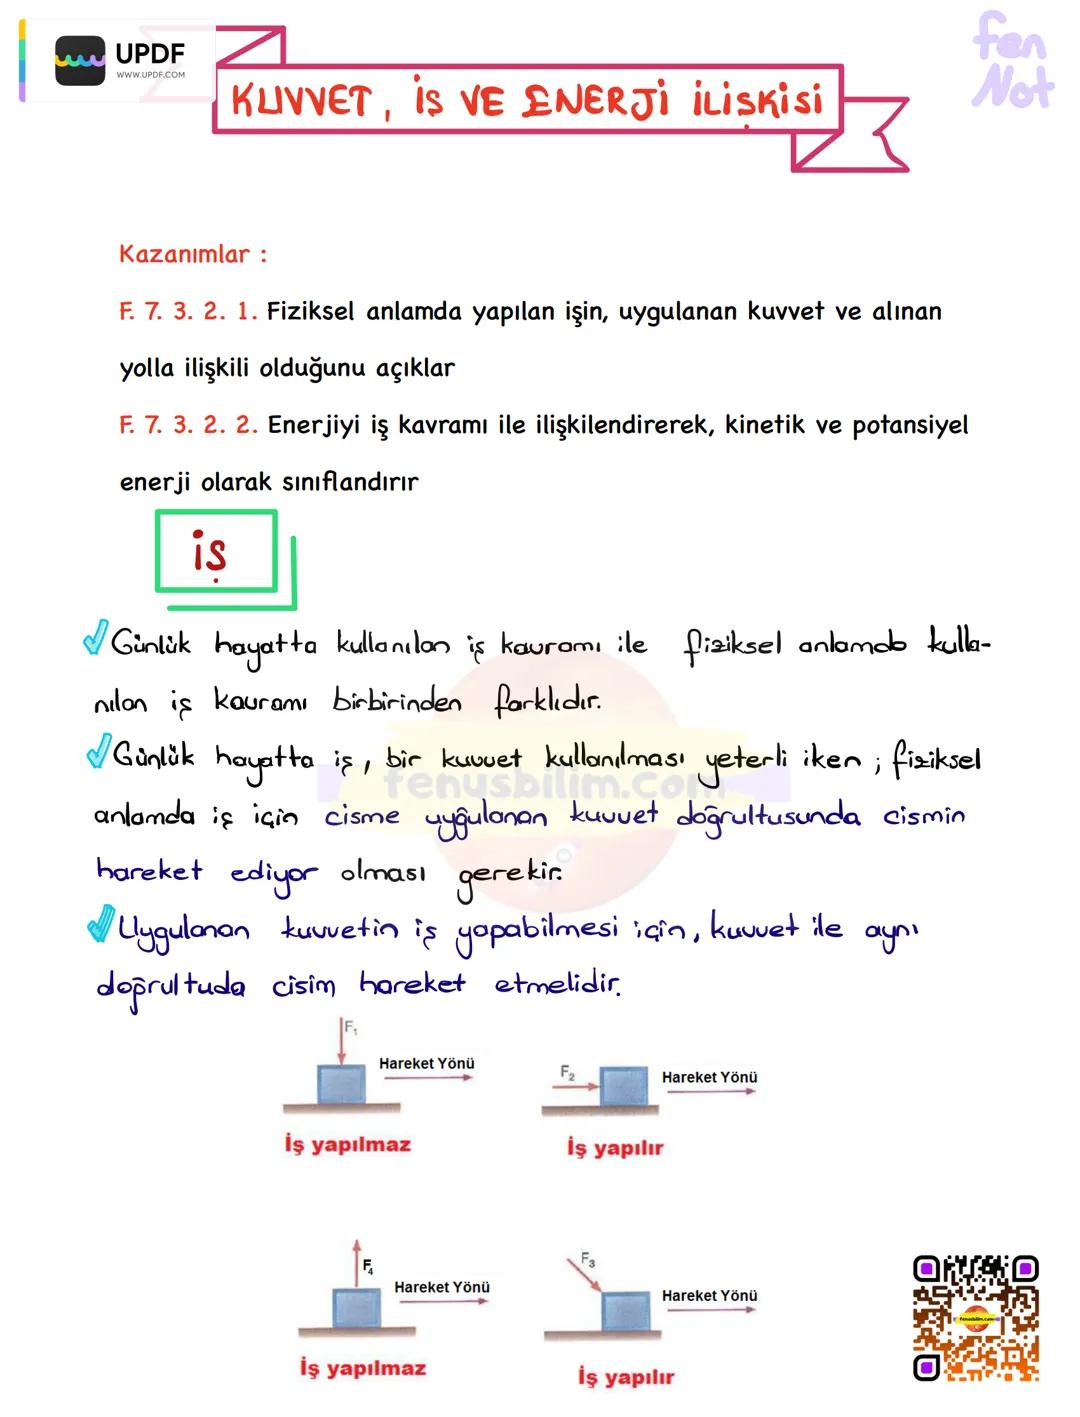 UPDF
WWW.UPDF.COM
fen
Not
KUVVET, İŞ VE ENERJİ İLİŞKİSİ
Kazanımlar :
F. 7. 3. 2. 1. Fiziksel anlamda yapılan işin, uygulanan kuvvet ve alınan
yolla ilişkili olduğunu açıklar
F. 7. 3. 2. 2. Enerjiyi iş kavramı ile ilişkilendirerek, kinetik ve potansiyel
enerji olarak sınıflandırır
iş
Günlük hayatta kullanılan iş kavramı ile fiziksel anlamda kulla-
nılan iş kavramı birbirinden farklıdır.
Günlük hayatta iş, bir kuvvet kullanılması yeterli iken ; fiziksel
fenusbilim.com
anlamda iş için cisme uygulanan kuvvet doğrultusunda cismin
hareket ediyor olması gerekir.
Uygulanan kuvvetin iş yapabilmesi için, kuvvet ile aynı
doğrultuda cisim hareket etmelidir.
F1
Hareket Yönü
İş yapılmaz
F2
Hareket Yönü
İş yapılır
F4
Hareket Yönü
İş yapılmaz
F3
Hareket Yönü
İş yapılır
Fenusbilim.com